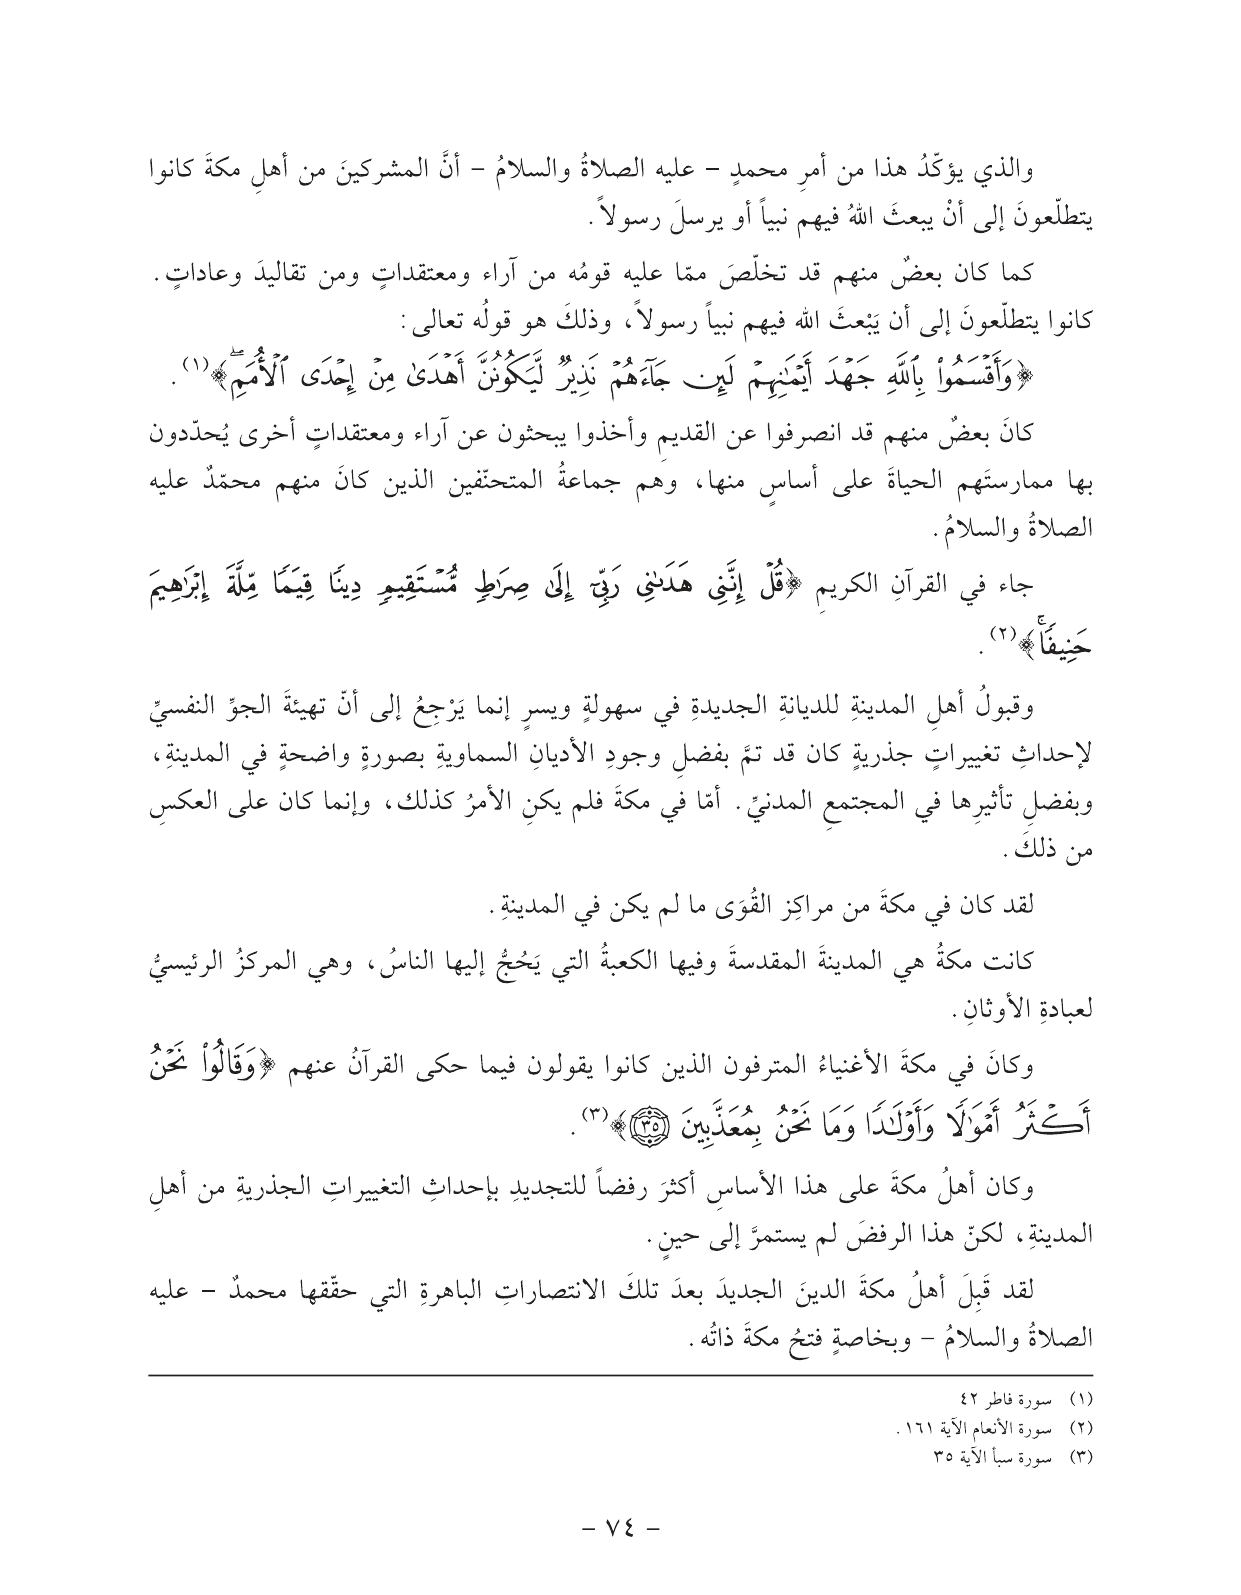 والذي يؤكّدُ هذا من أمرِ محمدٍ – عليه الصلاةُ والسلامُ – أنَّ المشركينَ من أهلِ مكةَ كانوا
يتطلّعونَ إلى أنْ يبعثَ اللهُ فيهم نبياً أو يرسلَ رسولاً.
كما كان بعضٌ منهم قد تخلّصَ ممّا عليه قومُه من آراء ومعتقداتٍ ومن تقاليدَ وعاداتٍ.
كانوا يتطلّعونَ إلى أن يَبْعثَ الله فيهم نبياً رسولاً، وذلكَ هو قولُه تعالى:
﴿وَأَقْسَمُوا۟ بِٱللَّهِ جَهْدَ أَيْمَٰنِهِمْ لَئِن جَآءَهُمْ نَذِيرٌ لَّيَكُونُنَّ أَهْدَىٰ مِنْ إِحْدَى ٱلْأُمَمِۖ﴾(١).
كانَ بعضٌ منهم قد انصرفوا عن القديمِ وأخذوا يبحثون عن آراء ومعتقداتٍ أخرى يُحدّدون
بها ممارستَهم الحياةَ على أساسٍ منها، وهم جماعةُ المتحنّفين الذين كانَ منهم محمّدٌ عليه
الصلاةُ والسلامُ.
جاء في القرآنِ الكريمِ ﴿قُلْ إِنَّنِى هَدَىٰنِى رَبِّىٓ إِلَىٰ صِرَٰطٍ مُّسْتَقِيمٍ دِينًا قِيَمًا مِّلَّةَ إِبْرَٰهِيمَ
حَنِيفًاۚ﴾(٢).
وقبولُ أهلِ المدينةِ للديانةِ الجديدةِ في سهولةٍ ويسرٍ إنما يَرْجِعُ إلى أنّ تهيئةَ الجوِّ النفسيِّ
لإحداثِ تغييراتٍ جذريةٍ كان قد تمَّ بفضلِ وجودِ الأديانِ السماويةِ بصورةٍ واضحةٍ في المدينةِ،
وبفضلِ تأثيرِها في المجتمعِ المدنيِّ. أمّا في مكةَ فلم يكنِ الأمرُ كذلك، وإنما كان على العكسِ
من ذلكَ.
لقد كان في مكةَ من مراكِزِ القُوَى ما لم يكن في المدينةِ.
كانت مكةُ هي المدينةَ المقدسةَ وفيها الكعبةُ التي يَحُجُّ إليها الناسُ، وهي المركزُ الرئيسيُّ
لعبادةِ الأوثانِ.
وكانَ في مكةَ الأغنياءُ المترفون الذين كانوا يقولون فيما حكى القرآنُ عنهم ﴿وَقَالُوا۟ نَحْنُ
أَكْثَرُ أَمْوَٰلًا وَأَوْلَٰدًا وَمَا نَحْنُ بِمُعَذَّبِينَ ٣٥﴾(٣).
وكان أهلُ مكةَ على هذا الأساسِ أكثرَ رفضاً للتجديدِ بإحداثِ التغييراتِ الجذريةِ من أهلِ
المدينةِ، لكنّ هذا الرفضَ لم يستمرَّ إلى حينٍ.
لقد قَبِلَ أهلُ مكةَ الدينَ الجديدَ بعدَ تلكَ الانتصاراتِ الباهرةِ التي حقّقها محمدٌ – عليه
الصلاةُ والسلامُ – وبخاصةٍ فتحُ مكةَ ذاتُه.
(١) سورة فاطر ٤٢
(٢) سورة الأنعام الآية ١٦١.
(٣) سورة سبأ الآية ٣٥
– ٧٤ –